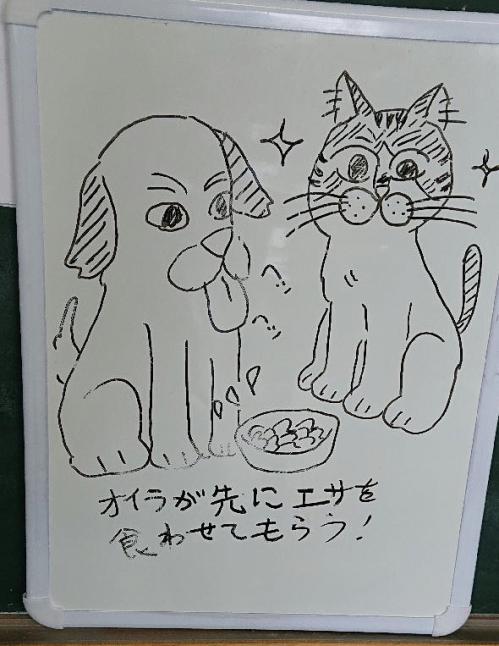 オイラが先にエサを
食わせてもらう!